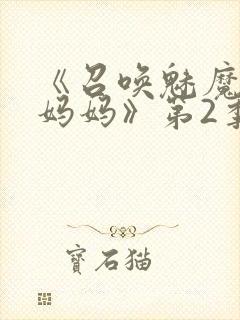 《召唤魅魔
妈妈》第2季
寶石猫